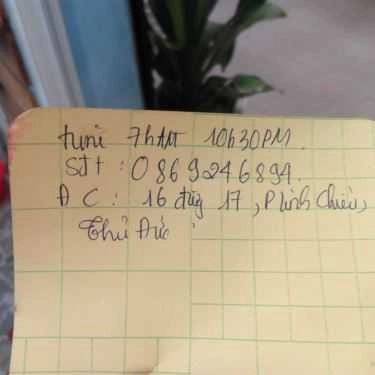 time 7h AM 10h30PM.
Sđt : 0869246894.
ĐC : 16 đường 17, P linh Chiểu,
Thủ Đức